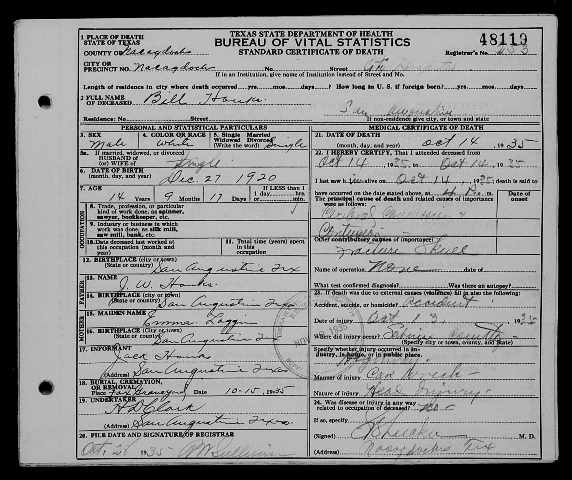 TEXAS STATE DEPARTMENT OF HEALTH
BUREAU OF VITAL STATISTICS
STANDARD CERTIFICATE OF DEATH
48119
1 PLACE OF DEATH
STATE OF TEXAS
COUNTY OF Nacogdoches
Registrar's No.
CITY OR
PRECINCT NO. Nacogdoches
If in an Institution, give name of Institution instead of Street and No.
Length of residence in city where death occurred yrs. mos. days? How long in U. S. if foreign born? yrs. mos. days?
2 FULL NAME
OF DECEASED Bill Hanks
Residence: No. Street San Augustine
If non-residence give city, or town and state
PERSONAL AND STATISTICAL PARTICULARS
3. SEX Male
4. COLOR OR RACE White
5. Single Married Widowed Divorced (Write the word) Single
5a. If married, widowed, or divorced
HUSBAND OF
(or) WIFE OF Single
6. DATE OF BIRTH
(month, day, and year) Dec 27 1920
7. AGE 14 Years 9 Months 17 Days IF LESS than 1 day, hrs. min.
OCCUPATION
8. Trade, profession, or particular
kind of work done, as spinner,
sawyer, bookkeeper, etc.
9. Industry or business in which
work was done, as silk mill,
saw mill, bank, etc.
10. Date deceased last worked at
this occupation (month and
year)
11. Total time (years) spent in this
occupation
12. BIRTHPLACE (city or town)
(State or country) San Augustine Tex
FATHER
13. NAME J. W. Hanks
14. BIRTHPLACE (city or town)
(State or country) San Augustine Tex
MOTHER
15. MAIDEN NAME Emma
16. BIRTHPLACE (city or town)
(State or country) San Augustine
17. INFORMANT Jack Hanks
(Address) San Augustine Tex
18. BURIAL, CREMATION,
OR REMOVAL
Place Graveyard Date 10-15, 1935
19. UNDERTAKER H B Clark
(Address) San Augustine Texas
20. FILE DATE AND SIGNATURE OF REGISTRAR
Oct. 21 1935 Sullivan
MEDICAL CERTIFICATE OF DEATH
21. DATE OF DEATH
(month, day, and year) Oct 14, 1935
22. I HEREBY CERTIFY, That I attended deceased from
Oct 14 1935 to Oct 14, 1935
I last saw him on Oct 14 1935 death is said to
have occurred on the date stated above, at m.
The principal cause of death and related causes of importance
were as follows:
Date of
onset
Contusion
Other contributory causes of importance:
Fracture Skull
Name of operation None date of
What test confirmed diagnosis? Was there an autopsy?
23. If death was due to external causes (violence) fill in also the following:
Accident, suicide, or homicide? Accident
Date of injury Oct 3 1935
Where did injury occur? Sabine County
(Specify city or town, county, and State)
Specify whether injury occurred in industry, in home, or in public place.
Highway
Manner of injury Car Wreck
Nature of injury Head Injury
24. Was disease or injury in any way
related to occupation of deceased? no
If so, specify
(Signed) M. D.
(Address) Nacogdoches Tex